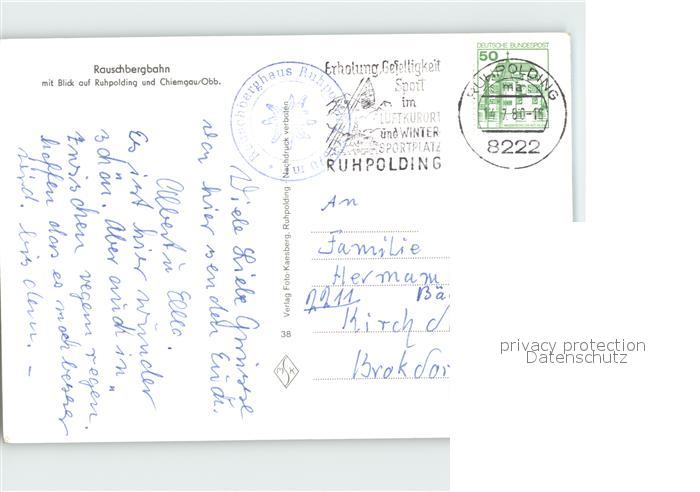 Rauschbergbahn
mit Blick auf Ruhpolding und Chiemgau/Obb.
Rauschberghaus Ruhpolding
Erholung, Geselligkeit
Sport
im
LUFTKURORT
und WINTER
SPORTPLATZ
RUHPOLDING
DEUTSCHE BUNDESPOST
50
RUHPOLDING
8222
Viele Liebe Grüsse
von hier senden Euch.
Albert u Ella.
Es ist hier wunder
schön. Aber auch in
zwischen regen regen.
hoffen das es noch besser
wird. bis dann. –
Verlag Foto-Kansberg, Ruhpolding · Nachdruck verboten
38
An
Familie
Hermann
2211 Bä
Kirch
Brokdor
privacy protection
Datenschutz